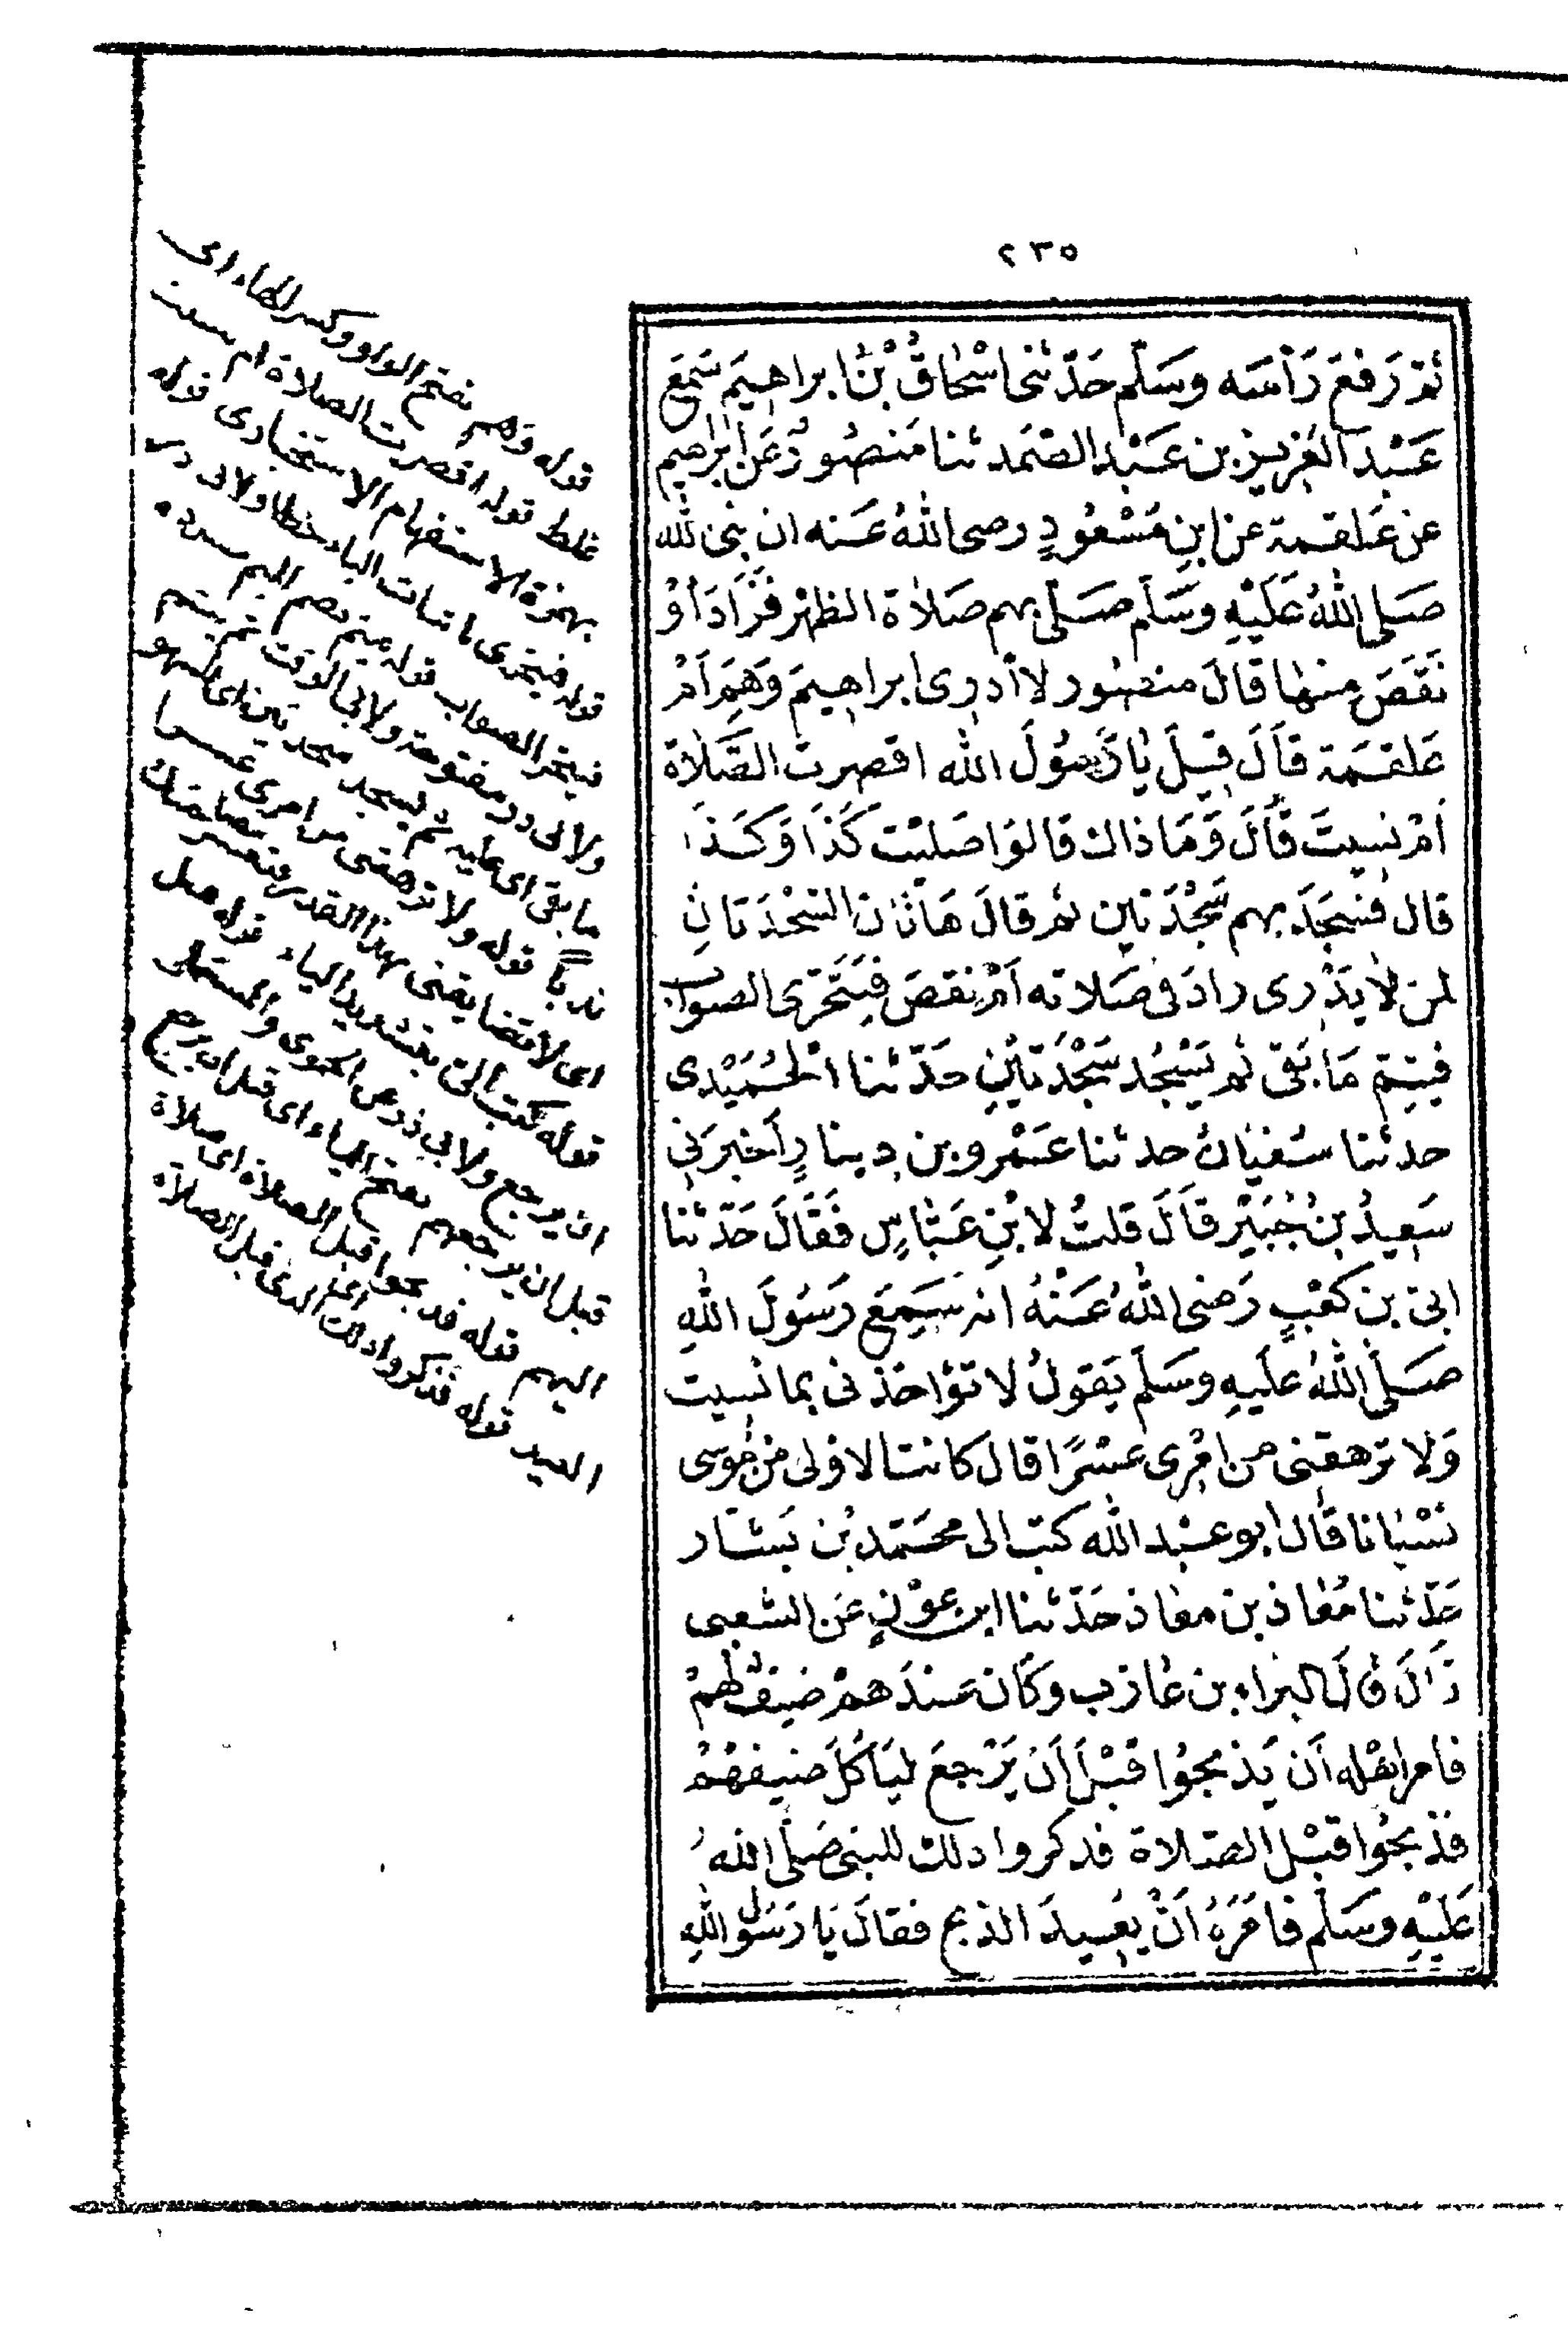 ٢٣٥
ثم رَفعَ رَأسَه وسَلّم حَدّثنى اسْحَاقُ بْنُ ابراهيمَ سَمعَ
عَبْدَ العَزيز بن عَبْدِ الصَّمَد ثنا مَنصُورٌ عَن ابرٰهيم
عن عَلقمة عن ابنِ مَسْعُودٍ رضى اللهُ عَنه ان نبى الله
صَلى اللهُ عَلَيْهِ وسَلّم صَلّى بهم صَلاةَ الظهْر فزَادَ أوْ
نَقَصَ منها قالَ منصُور لا أدرِى ابراهيمَ وَهِمَ أمْ
عَلقمَة قاَلَ قِيلَ يٰا رَسُولَ الله اقصرت الصَّلاة
امْ نسِيتَ قالَ وَمَا ذاك قالوَا صَليْت كَذَا وَكَذَا
قال فسَجَدَ بهم سَجْدَتين ثم قالَ هَاتان السَّجْدَتانِ
لمن لا يَدْرى زادَ فى صَلاته أمْ نقصَ فيَتَحَرّى الصواب
فيتِمّ مَا بَقى ثم يَسْجُد سَجْدَتيْنِ حَدّثنا الحُمَيْدى
حدثنا سُفيَانُ حدثنا عَمْرو بن دِينارٍ أخبرَنِى
سَعِيدُ بنُ جُبَيْر قاَلَ قلتُ لابْنِ عَبّاسٍ فَقَالَ حَدّثنا
ابىّ بن كعْبٍ رَضى اللهُ عَنْهُ انه سَمِعَ رَسُولَ اللهِ
صَلّى اللهُ عليهِ وسَلّمَ يَقولُ لا تؤاخذْنى بما نَسِيت
وَلا تُرهقنى من امْرِى عسْرًا قال كانت الاوْلى من مُوسى
نسْيانا قال ابو عبْد الله كتب الى محَمّد بْن بَشّار
حَدّثنا مُعاذ بن معاذ حَدّثنا ابن عوْنٍ عَن الشعبى
قاَلَ قاَلَ البراء بن عازب وكَان عندَهمْ ضيفٌ لهمْ
فامر اهْله أن يَذبحُوا قَبْلَ أنْ يَرْجعَ ليَأكُلَ ضيفهُمْ
فذبحُوا قبْل الصّلاة فذكروا ذلك للنبى صَلّى اللهُ
عَلَيْهِ وسَلّم فامَرَهُ أَنْ يُعِيدَ الذبح فقالَ يَا رَسُولَ اللهِ
قوله وَهم بفتح الواو وكسر الهاء اى
غلط قوله اقصرت الصلاة ام نسيت
بهمزة الاستفهام الاستخبارى قوله
قوله فيتحرى باثبات الياء خطا ولابى ذر
فيتحر الصواب قوله فيتم بضم الميم مسدده
ولابى ذر مفتوحة ولابى الوقت ثم يتم
ما بقى اى عليه ثم يسجد سجدتين اى للسهو
ندبا قوله ولا ترهقنى من امرى عسرا
قوله كتب الىّ بتشديد الياء قوله قبل
ان يرجع ولابى ذر عن الحموى والمستملى
قبل ان يرجعهم بفتح الياء اى قبل ان يرجع
اليهم قوله فذبحوا قبل الصلاة اى صلاة
العيد قوله فذكروا ذلك اى الذبح قبل الصلاة